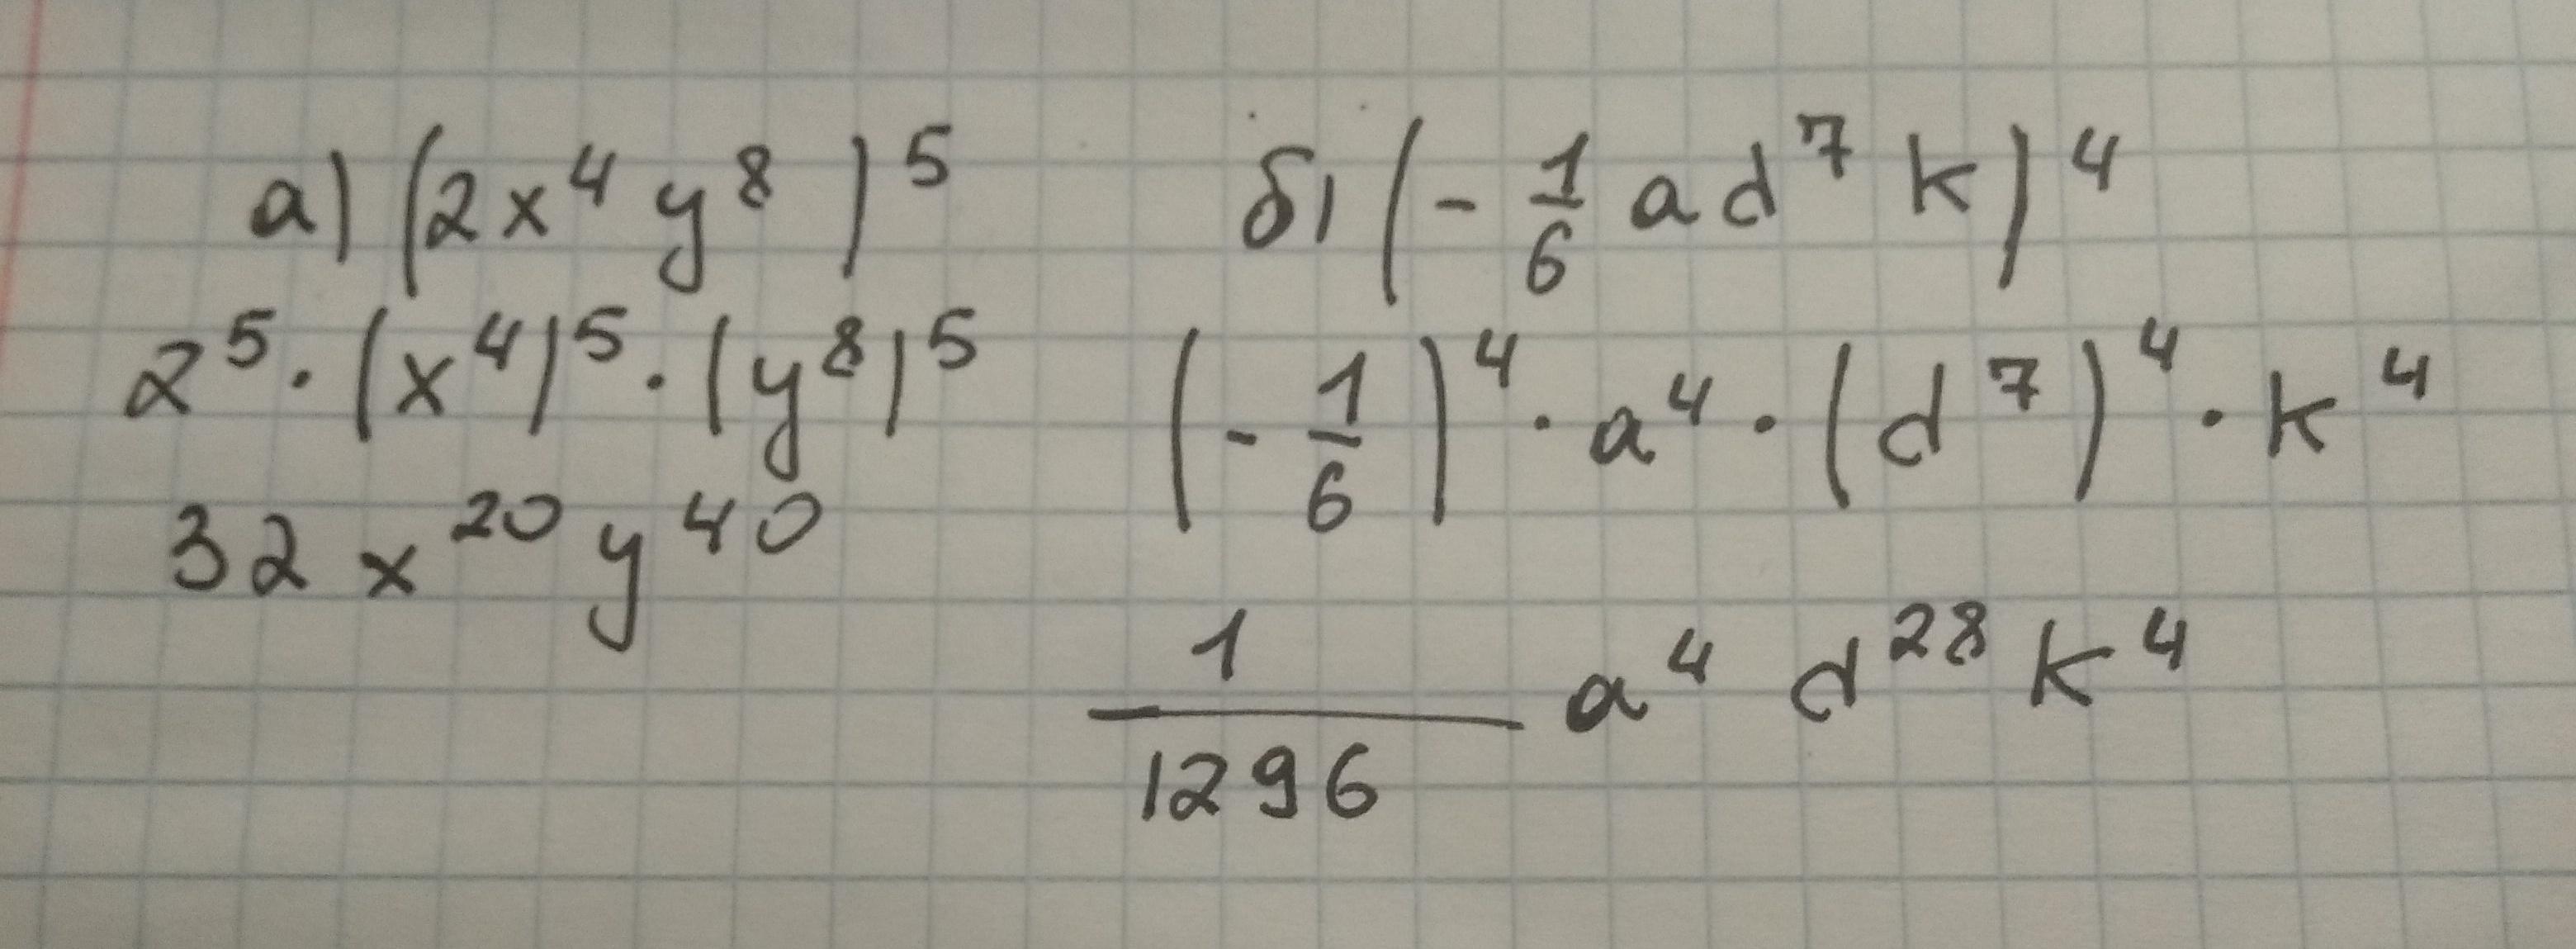 а) (2x⁴ y⁸)⁵
2⁵ · (x⁴)⁵ · (y⁸)⁵
32 x²⁰ y⁴⁰
б) (- 1/6 a d⁷ k)⁴
(- 1/6)⁴ · a⁴ · (d⁷)⁴ · k⁴
1/1296 a⁴ d²⁸ k⁴